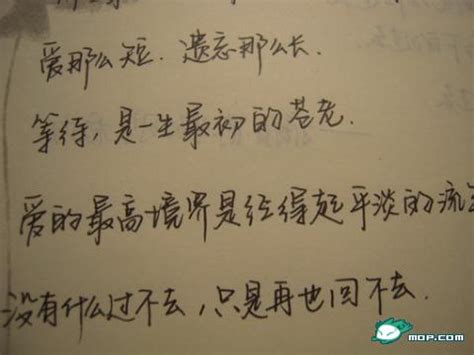 爱那么短.遗忘那么长.
等待,是一生最初的苍老.
爱的最高境界是经得起平淡的流
没有什么过不去,只是再也回不去.
mop.com